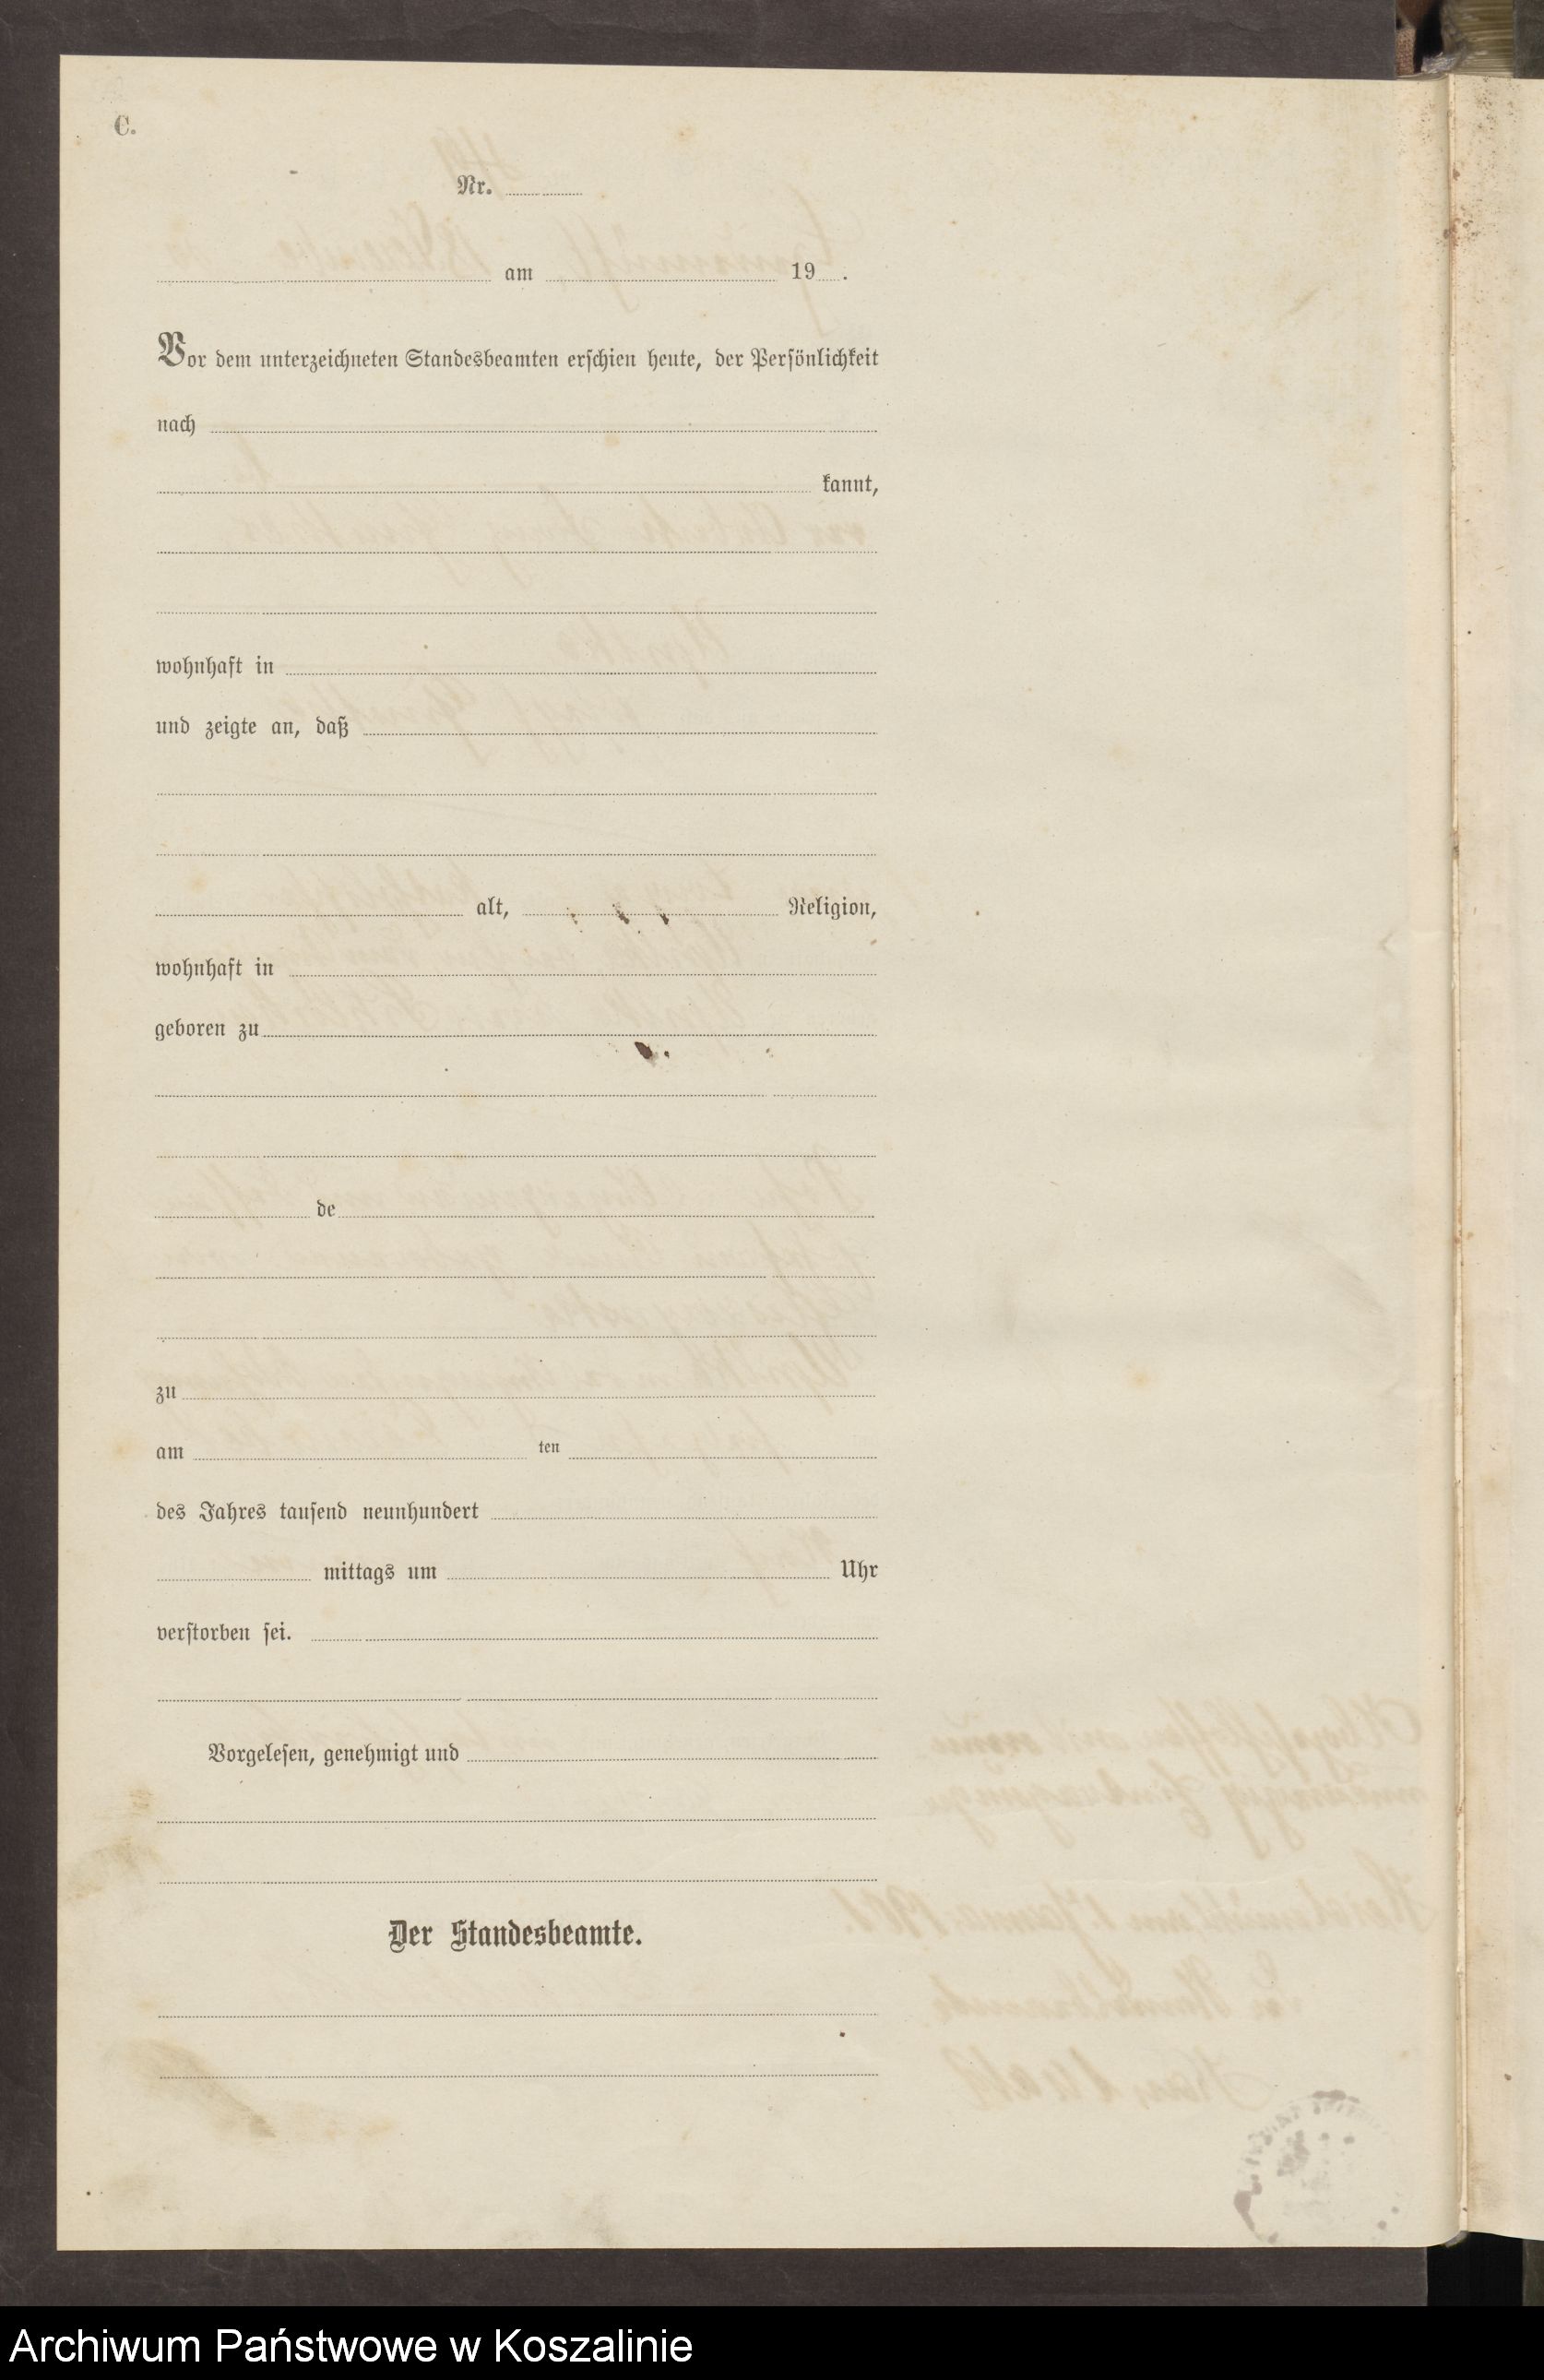 C.
Nr.
am 19 .
Vor dem unterzeichneten Standesbeamten erschien heute, der Persönlichkeit
nach
kannt,
wohnhaft in
und zeigte an, daß
alt, Religion,
wohnhaft in
geboren zu
de
zu
am ten
des Jahres tausend neunhundert
mittags um Uhr
verstorben sei.
Vorgelesen, genehmigt und
Der Standesbeamte.
Archiwum Państwowe w Koszalinie